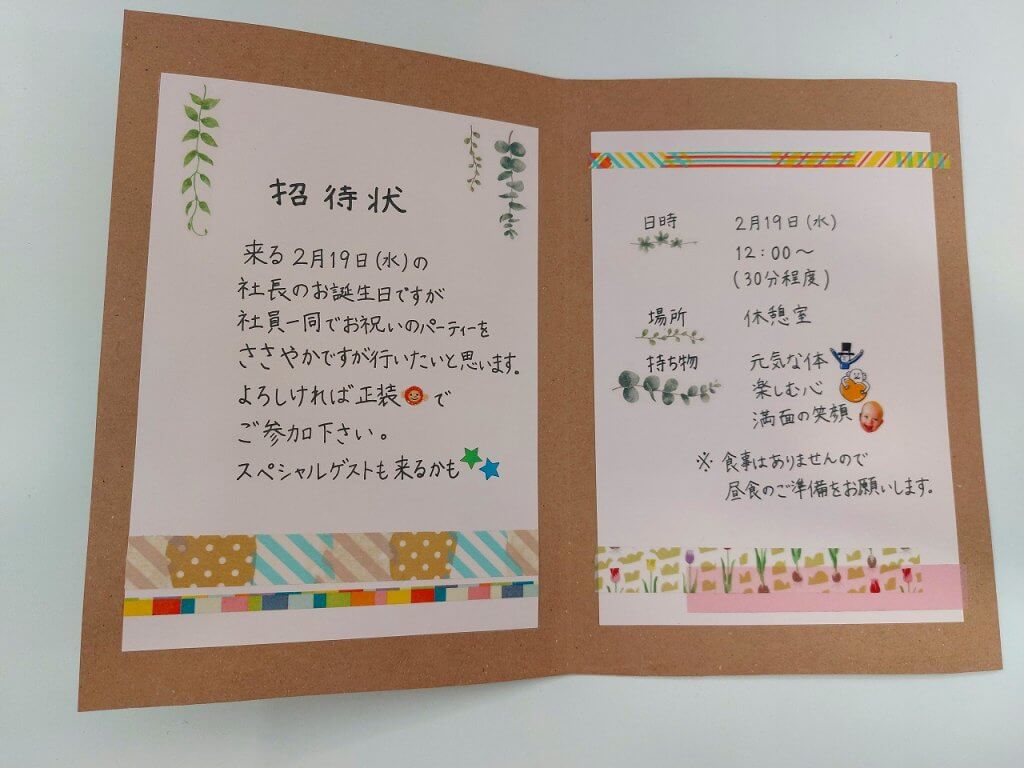 招待状
来る2月19日(水)の
社長のお誕生日ですが
社員一同でお祝いのパーティーを
ささやかですが行いたいと思います。
よろしければ正装で
ご参加下さい。
スペシャルゲストも来るかも
日時 2月19日(水)
12:00〜
(30分程度)
場所 休憩室
持ち物 元気な体
楽しむ心
満面の笑顔
※ 食事はありませんので
昼食のご準備をお願いします。